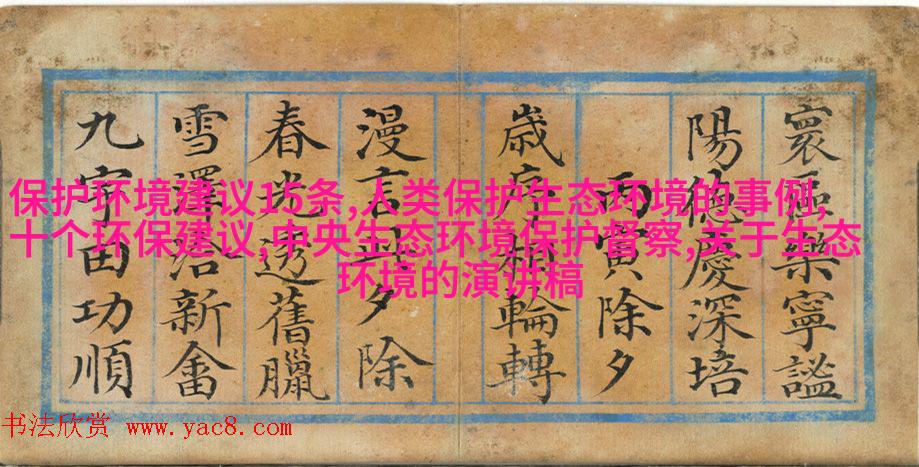 寰區樂寧謐
陽德慶深培
丙寅除夕
歲序輪轉
漫言此夕除
春光透舊臘
雪澤新畬
九宇田功順
保护环境建议15条,人类保护生态环境的事例,
十个环保建议,中央生态环境保护督察,关于生态
环境的演讲稿
书法欣赏 www.yac8.com